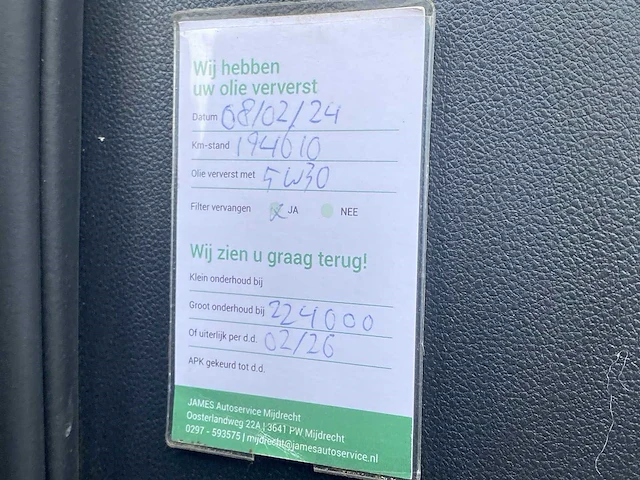 Wij hebben
uw olie ververst
Datum 08/02/24
Km-stand 194610
Olie ververst met 5W30
Filter vervangen X JA NEE
Wij zien u graag terug!
Klein onderhoud bij
Groot onderhoud bij 224000
Of uiterlijk per d.d. 02/26
APK gekeurd tot d.d.
JAMES Autoservice Mijdrecht
Oosterlandweg 22A | 3641 PW Mijdrecht
0297 - 593575 | mijdrecht@jamesautoservice.nl